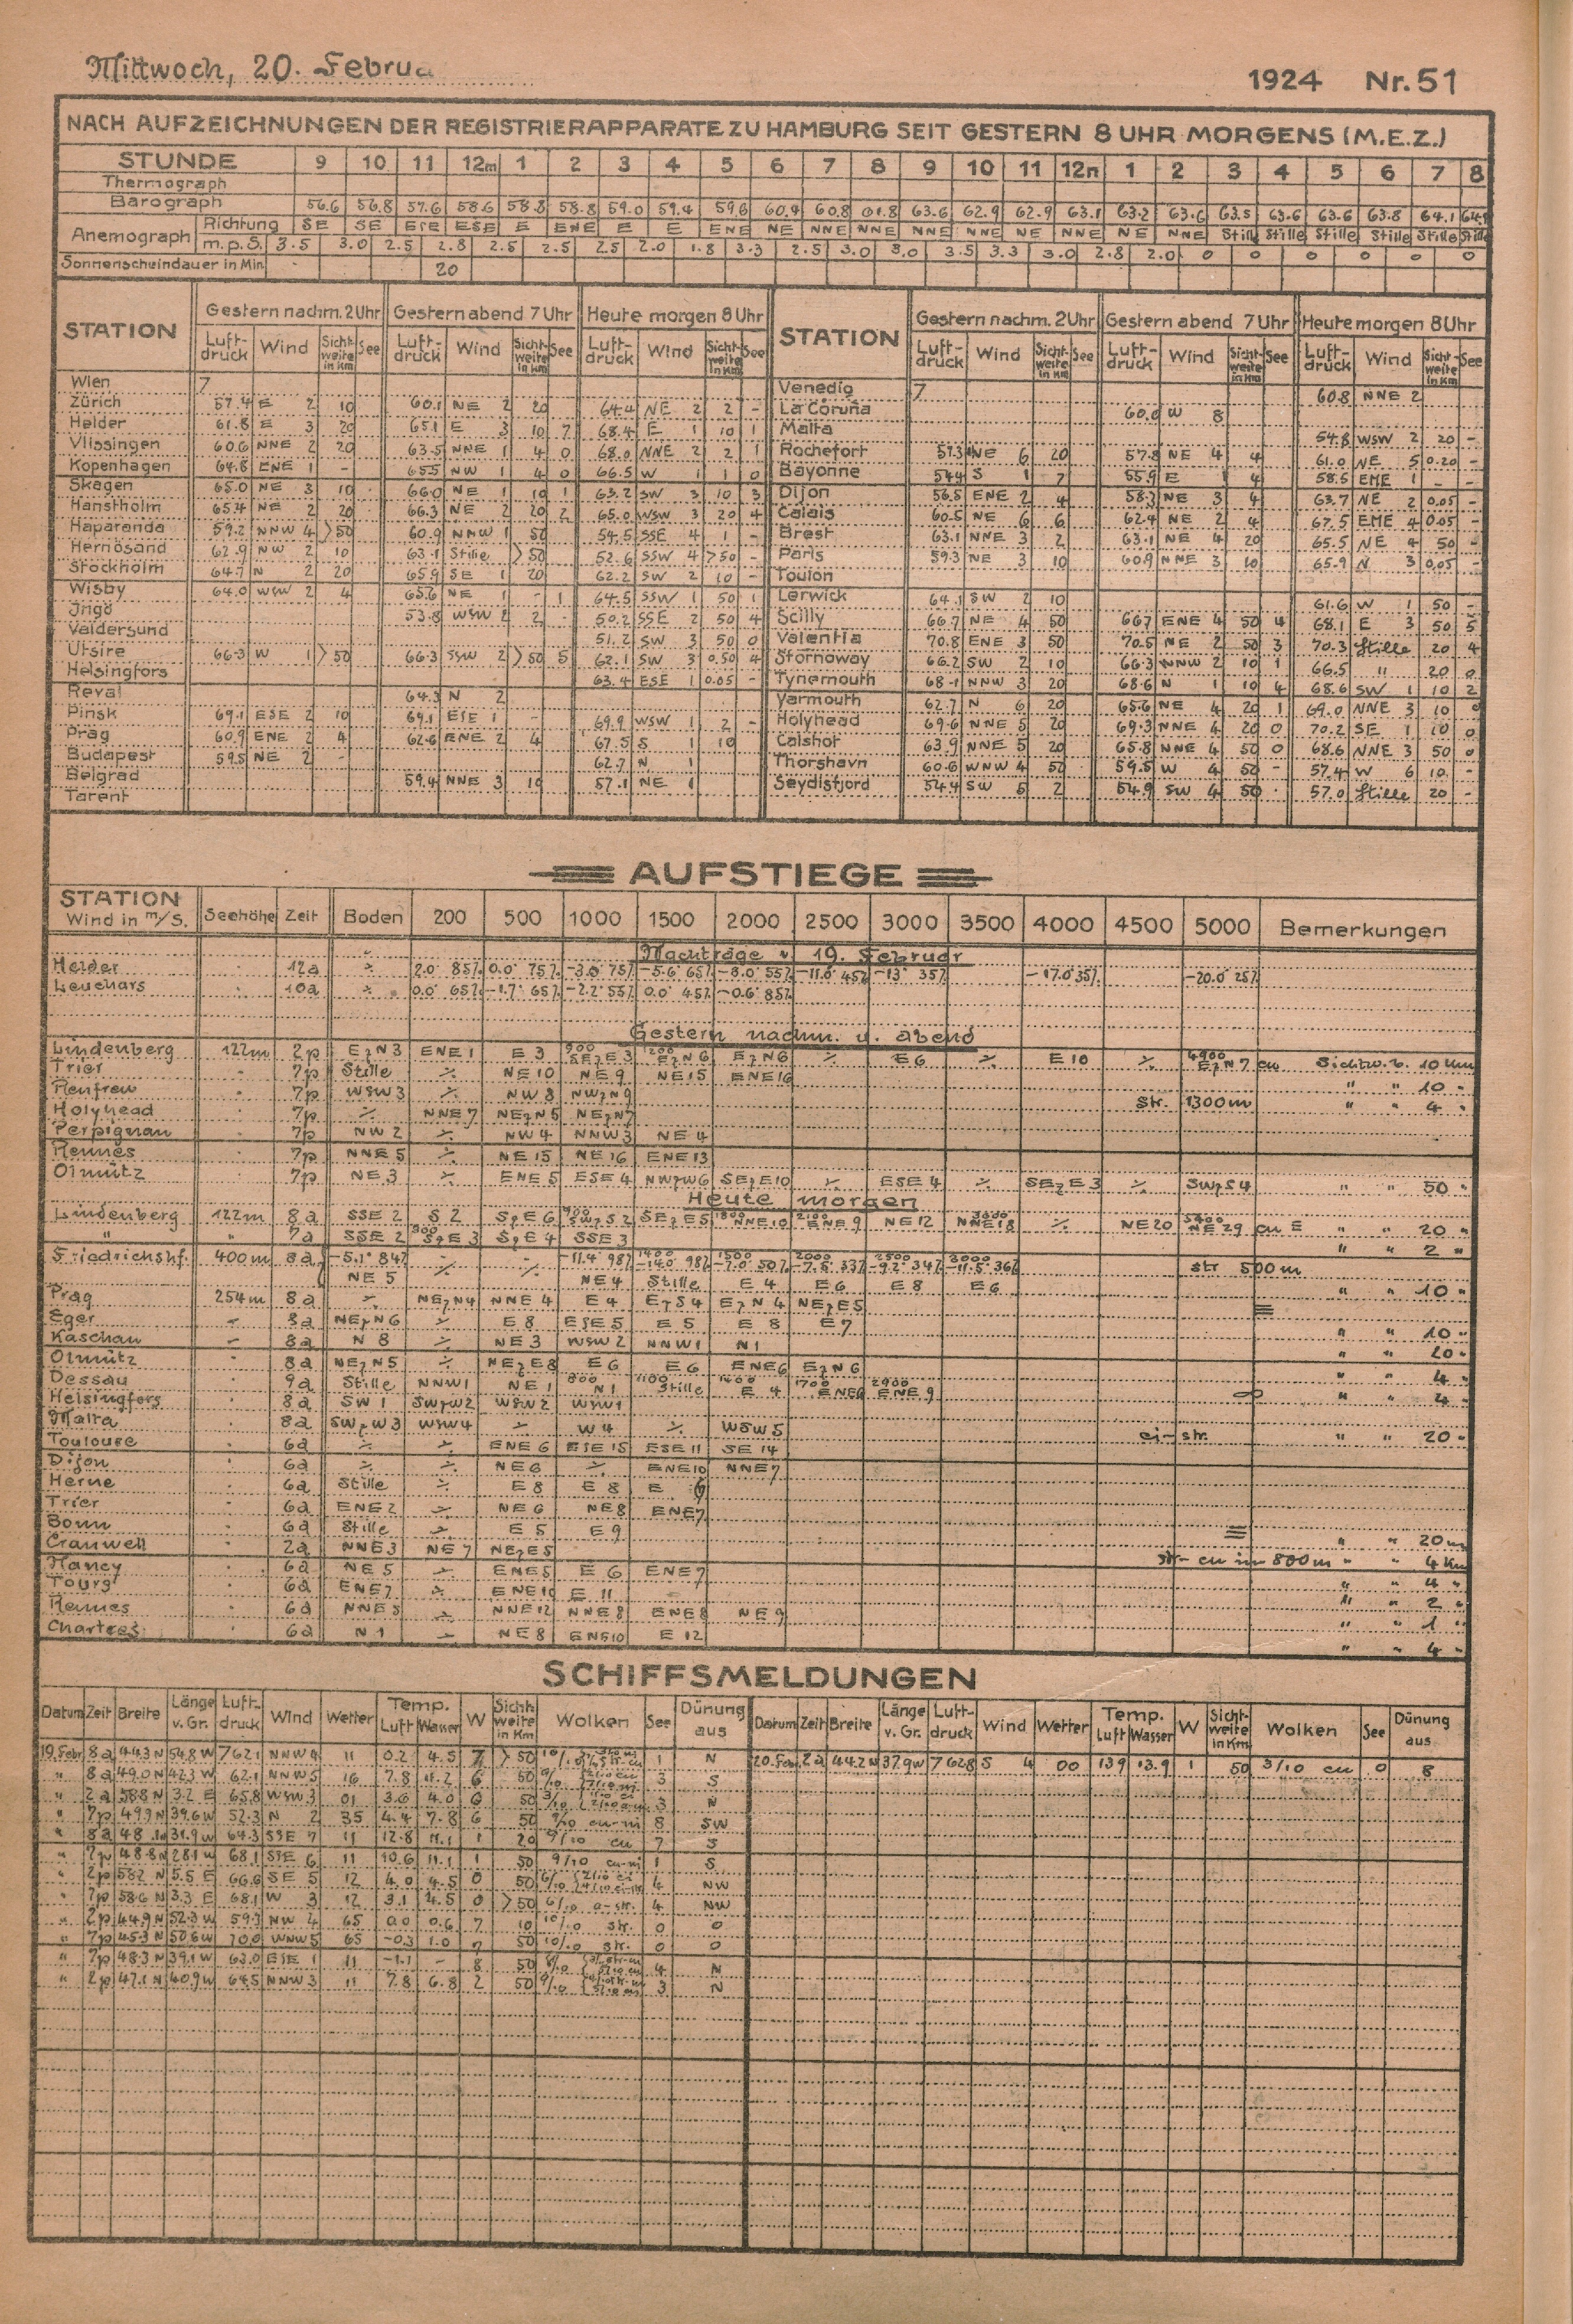 Mittwoch, 20. Februa
1924 Nr. 51
NACH AUFZEICHNUNGEN DER REGISTRIERAPPARATE ZU HAMBURG SEIT GESTERN 8 UHR MORGENS (M.E.Z.)
STUNDE 9 10 11 12m 1 2 3 4 5 6 7 8 9 10 11 12n 1 2 3 4 5 6 7 8
Thermograph
Barograph 56.6 56.8 57.6 58.6 58.8 58.8 59.0 59.4 59.6 60.4 60.8 61.8 63.6 62.9 62.9 63.1 63.2 63.6 63.5 63.6 63.6 63.8 64.1
Anemograph Richtung SE SE ESE ESE E ENE E E ENE NE NNE NNE NNE NNE NE NNE NE NNE Stille Stille Stille Stille Stille Stille
m.p.S. 3.5 3.0 2.5 2.8 2.5 2.5 2.5 2.0 1.8 3.3 2.5 3.0 3.0 3.5 3.3 3.0 2.8 2.0 0 0 0 0 0 0
Sonnenscheindauer in Min. 20
STATION Gestern nachm. 2 Uhr Gestern abend 7 Uhr Heute morgen 8 Uhr STATION Gestern nachm. 2 Uhr Gestern abend 7 Uhr Heute morgen 8 Uhr
Luft-druck Wind Sicht-weite in Km See Luft-druck Wind Sicht-weite in Km See Luft-druck Wind Sicht-weite in Km See Luft-druck Wind Sicht-weite in Km See Luft-druck Wind Sicht-weite in Km See Luft-druck Wind Sicht-weite in Km See
Wien 7 Venedig 7 60.8 NNE 2
Zürich 57.4 E 2 10 60.1 NE 2 20 64.4 NE 2 2 - La Coruña 60.0 W 8
Helder 61.8 E 3 20 65.1 E 3 10 7 68.4 E 1 10 1 Malta 54.8 WSW 2 20 -
Vlissingen 60.6 NNE 2 20 63.5 NNE 1 4 0 68.0 NNE 2 2 1 Rochefort 57.3 NE 6 20 57.8 NE 4 4 61.0 NE 5 0.20 -
Kopenhagen 64.8 ENE 1 - 65.5 NW 1 4 0 66.5 W 1 1 0 Bayonne 54.4 S 1 7 55.9 E 1 4 58.5 1 - -
Skagen 65.0 NE 3 10 66.0 NE 1 10 1 63.2 SW 3 10 3 Dijon 56.5 ENE 2 4 58.3 NE 3 4 63.7 NE 2 0.05 -
Hanstholm 65.4 NE 2 20 66.3 NE 2 20 2 65.0 WSW 3 20 4 Calais 60.5 NE 6 6 62.4 NE 2 4 67.5 4 0.05 -
Haparanda 59.2 NNW 4 >50 60.9 NNW 1 50 54.5 SSE 4 1 - Brest 63.1 NNE 3 2 63.1 NE 4 20 65.5 NE 4 50 -
Hernösand 62.9 NW 2 10 63.1 Stille >50 52.6 SSW 4 >50 - Paris 59.3 NE 3 10 60.9 NNE 3 10 65.9 N 3 0.05 -
Stockholm 64.7 N 2 20 65.9 SE 1 20 62.2 SW 2 10 - Toulon
Wisby 64.0 WSW 2 4 65.6 NE 1 - 1 64.5 SSW 1 50 1 Lerwick 64.1 SW 2 10 61.6 W 1 50 -
Ingö 53.8 WSW 2 2 50.2 SSE 2 50 4 Scilly 66.7 NE 4 50 66.7 ENE 4 50 4 68.1 E 3 50 5
Valdersund 51.2 SW 3 50 0 Valentia 70.8 ENE 3 50 70.5 NE 2 50 3 70.3 Stille 20 4
Utsire 66.3 W 1 >50 66.3 SSW 2 >50 5 62.1 SW 3 0.50 4 Stornoway 66.2 SW 2 10 66.3 WNW 2 10 1 66.5 " 20 0
Helsingfors 63.4 ESE 1 0.05 - Tynemouth 68.1 NNW 3 20 68.6 N 1 10 4 68.6 SW 1 10 2
Reval 64.3 N 2 Yarmouth 62.7 N 6 20 65.6 NE 4 20 1 69.0 NNE 3 10 0
Pinsk 69.1 ESE 2 10 69.1 ESE 1 - 69.9 WSW 1 2 - Holyhead 69.6 NNE 5 20 69.3 NNE 4 20 0 70.2 SE 1 10 0
Prag 60.9 ENE 2 4 62.6 ENE 2 4 67.5 S 1 10 Calshot 63.9 NNE 5 20 65.8 NNE 4 50 0 68.6 NNE 3 50 0
Budapest 59.5 NE 2 - 62.7 N 1 Thorshavn 60.6 WNW 4 50 59.5 W 4 50 - 57.4 W 6 10 -
Belgrad 59.4 NNE 3 10 57.1 NE 1 Seydisfjord 54.4 SW 5 2 54.9 SW 4 50 - 57.0 Stille 20 -
Tarent
AUFSTIEGE
STATION Wind in m/S. Seehöhe Zeit Boden 200 500 1000 1500 2000 2500 3000 3500 4000 4500 5000 Bemerkungen
Nachträge v. 19. Februar
Helder 12a ⁒ 2.0° 85% 0.0° 75% -3.0° 75% -5.6° 65% -8.0° 55% -11.0° 45% -13° 35% -17.0° 35% -20.0° 25%
Leuchars 10a ⁒ 0.0° 65% -1.7° 65% -2.2° 55% 0.0° 45% -0.6° 85%
Gestern nachm. u. abend
Lindenberg 122m 2p EzN3 ENE1 E3 900 SEzE3 1200 EzN6 EzN6 ⁒ E6 ⁒ E10 ⁒ 4900 EzN7 cu Sichtw. 10 Km
Trier 7p Stille ⁒ NE10 NE9 NE15 ENE16 " " 10 "
Renfrew 7p WSW3 ⁒ NW8 NWzN9 Str. 1300m " " 4 "
Holyhead 7p ⁒ NNE7 NEzN5 NEzN7
Perpignan 7p NW2 ⁒ NW4 NNW3 NE4
Rennes 7p NNE5 ⁒ NE15 NE16 ENE13
Olmütz 7p NE3 ⁒ ENE5 ESE4 NWzW6 SEzE10 ⁒ ESE4 ⁒ SEzE3 ⁒ SWzS4 " " 50 "
Heute morgen
Lindenberg 122m 8a SSE2 S2 SzE6 900 SWzS2 SEzE5 1800 NNE10 2100 ENE9 NE12 NNE18 ⁒ NE20 5400 NE29 cu E " " 20 "
" " 7a SSE2 300 SzE3 SzE4 SSE3 " " 2 "
Friedrichshf. 400m 8a -5.1° 84% ⁒ ⁒ -11.4° 98% 1400 -14.0° 98% 1500 -7.0° 50% 2000 -7.5° 33% 2500 -9.2° 34% 3000 -11.5° 36% str 500m
NE5 NE4 Stille E4 E6 E8 E6 " " 10 "
Prag 254m 8a ⁒ NEzN4 NNE4 E4 EzS4 EzN4 NEzE5 ≡
Eger - 8a NEzN6 ⁒ E8 ESE5 E5 E8 E7 " " 10 "
Kaschau - 8a N8 ⁒ NE3 WSW2 NNW1 N1 " " 20 "
Olmütz 8a NEzN5 ⁒ NEzE8 E6 E6 ENE6 EzN6 " " 4 "
Dessau 9a Stille NNW1 NE1 800 N1 1100 Stille 1400 E4 1700 ENE6 2900 ENE9 ∞ " " 4 "
Helsingfors 8a SW1 SWzW2 WSW2 WSW1
Malta 8a SWzW3 WSW4 ⁒ W4 ⁒ WSW5 ci-str. " " 20 "
Toulouse 6a ⁒ ⁒ ENE6 ESE15 ESE11 SE14
Dijon 6a ⁒ ⁒ NE6 ⁒ ENE10 NNE7
Herne 6a Stille ⁒ E8 E8 E
Trier 6a ENE2 ⁒ NE6 NE8 ENE7
Bonn 6a Stille ⁒ E5 E9 ≡
Cranwell 2a NNE3 NE7 NEzE5 " " 20 m
Nancy 6a NE5 ⁒ ENE5 E6 ENE7 str-cu in 800m " " 4 Km
Tours 6a ENE7 ⁒ ENE10 E11 " " 4 "
Rennes 6a NNE5 ⁒ NNE12 NNE8 ENE8 NE9 " " 2 "
Chartres 6a N1 ⁒ NE8 ENE10 E12 " " 1 "
" " 4 "
SCHIFFSMELDUNGEN
Datum Zeit Breite Länge v. Gr. Luft-druck Wind Wetter Temp. Luft Wasser W Sicht-weite in Km Wolken See Dünung aus Datum Zeit Breite Länge v. Gr. Luft-druck Wind Wetter Temp. Luft Wasser W Sicht-weite in Km Wolken See Dünung aus
19. Febr. 8a 44.3 N 54.8 W 762.1 NNW 4 11 0.2 4.5 7 >50 10/10 1 N 20. Feb. 2a 44.2 N 37.9 W 762.8 S 4 00 13.9 13.9 1 50 3/10 cu 0 8
" 8a 49.0 N 42.3 W 62.1 NNW 5 16 7.8 11.2 6 50 3 S
" 2a 58.8 N 3.2 E 65.8 WSW 3 01 3.6 4.0 6 50 3/10 3 N
" 7p 49.9 N 39.6 W 52.3 N 2 35 4.4 7.8 6 50 9/10 cu-ni 8 SW
" 8a 48 31.9 W 64.3 SSE 7 11 12.8 11.1 1 20 9/10 cu 7 S
" 7p 48.8 N 28.1 W 68.1 SSE 6 11 10.6 11.1 1 50 9/10 cu-ni 1 S
" 2p 58.2 N 5.5 E 66.6 SE 5 12 4.0 4.5 0 50 6/10 4 NW
" 7p 58.6 N 3.3 E 68.1 W 3 12 3.1 4.5 0 >50 6/10 a-str. 4 NW
" 2p 44.9 N 52.3 W 59.3 NW 4 65 0.0 0.6 7 10 10/10 str. 0 0
" 7p 45.3 N 50.6 W 70.0 WNW 5 65 -0.3 1.0 7 50 10/10 str. 0 0
" 7p 48.3 N 39.1 W 63.0 ESE 1 11 -1.1 - 8 50 4 N
" 2p 47.1 N 40.9 W 64.5 NNW 3 11 7.8 6.8 2 50 9/10 3 N